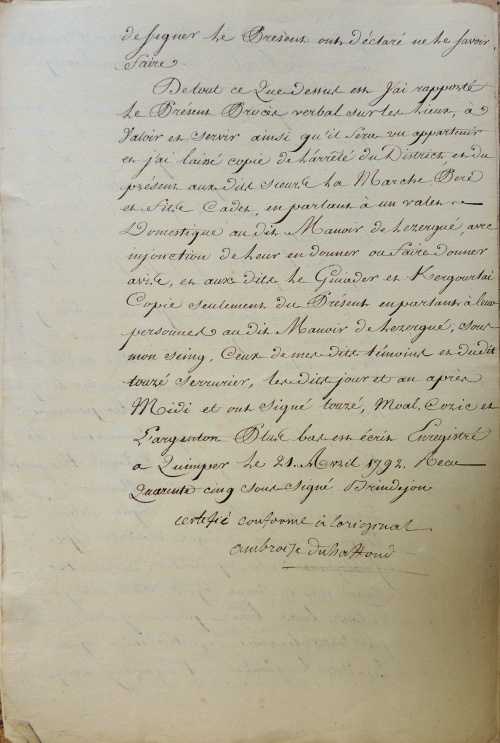 de signer le Present ont déclaré ne le savoir
faire.
De tout ce Que dessus est J'ai rapporté
le Présent Procès verbal sur les Lieux, à
Valoir et servir ainsi qu'il Sera vu appartenir
et j'ai laissé copie de l'arrêté du District, et du
présent aux dits sieurs La Marche Pere
et Fils Cadet, en parlant à un valet
Domestique au dit Manoir de Lezergué, avec
injonction de leur en donner ou faire donner
avis, et aux dits le Guiader et Kergourlai
Copie seulement du Présent en parlant à leurs
personnes au dit Manoir de Lezergué, sous
mon seing, Ceux de mes dits témoins et du dit
touzé serrurier, les dits jour et an après
Midi et ont signé touzé, Moal, Cozic et
Largenton Plus bas est écrit Enregistré
a Quimper le 21. Avril 1792. Recu
Quarente cinq sous signé Brindejon
certifié conforme à l'original
ambroise